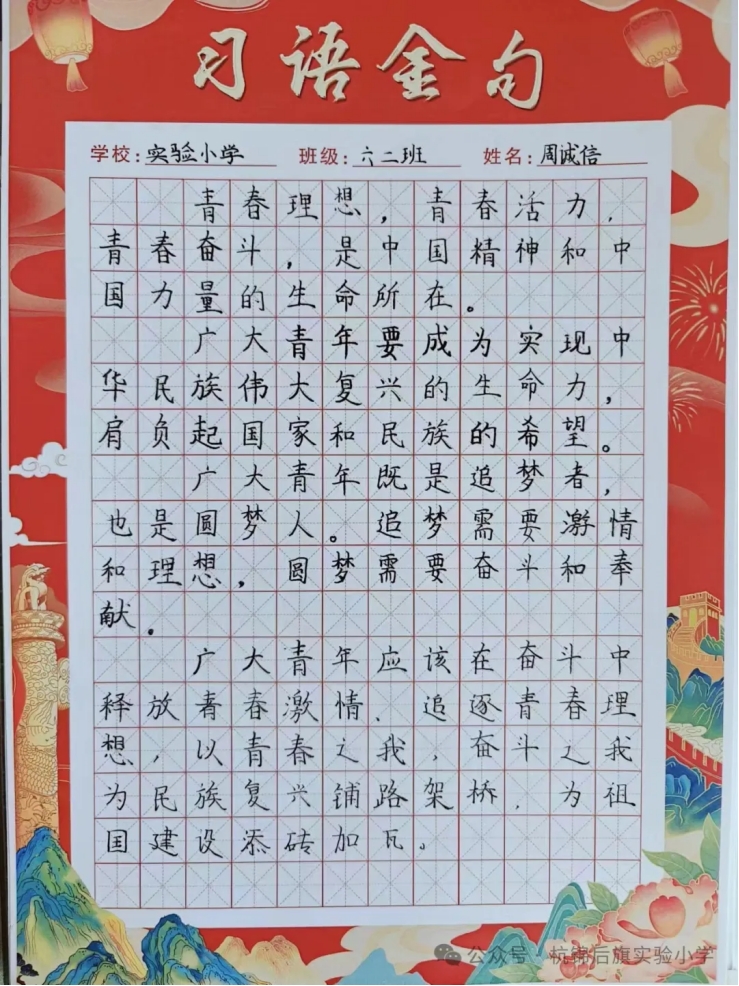 习语金句
学校:实验小学 班级:六二班 姓名:周诚信
青春理想，青春活力，
青春奋斗，是中国精神和中
国力量的生命所在。
广大青年要成为实现中
华民族伟大复兴的生命力，
肩负起国家和民族的希望。
广大青年既是追梦者，
也是圆梦人。追梦需要激情
和理想，圆梦需要奋斗和奉
献。
广大青年应该在奋斗中
释放青春激情、追逐青春理
想，以青春之我，奋斗之我
为民族复兴铺路架桥，为祖
国建设添砖加瓦。
公众号·杭锦后旗实验小学